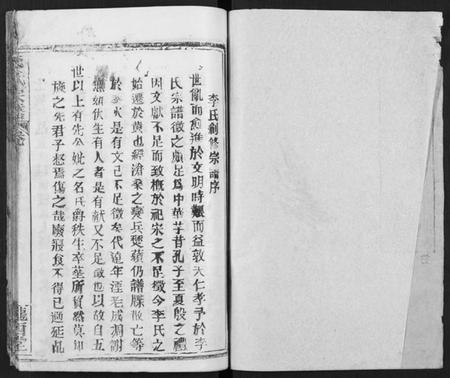 李氏創修宗譜序
世亂而愈進於文明時艱而益敦夫仁孝予於李
氏宗譜徵之頗足為中華幸昔孔子至夏殷之禮
因文獻不足而致慨於杞宋之不足徵今李氏之
始遷於黃也經滄桑之變兵燹頻仍譜牒散亡等
於秦火是有文已不足徵矣代遠年湮老成凋謝
無如伏生有人者是有獻又不足徵也以故自五
世以上有先公妣之名氏爵秩生卒葬所貿然莫知
族之先君子惄焉傷之哉廢寢食不得已適延乩